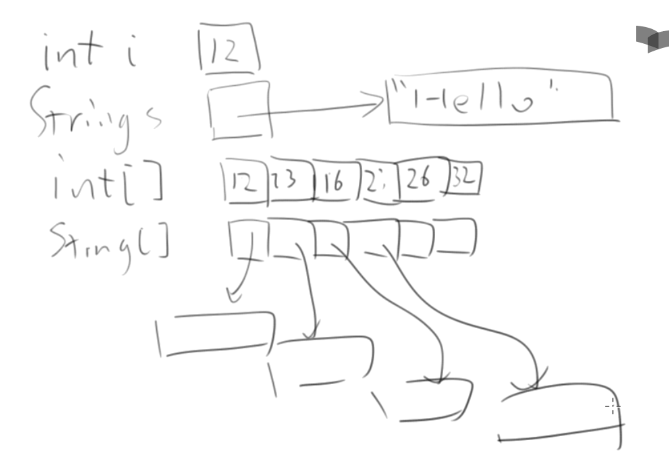 int i 12
String s "Hello"
int[] 12 13 16 26 32
String[]